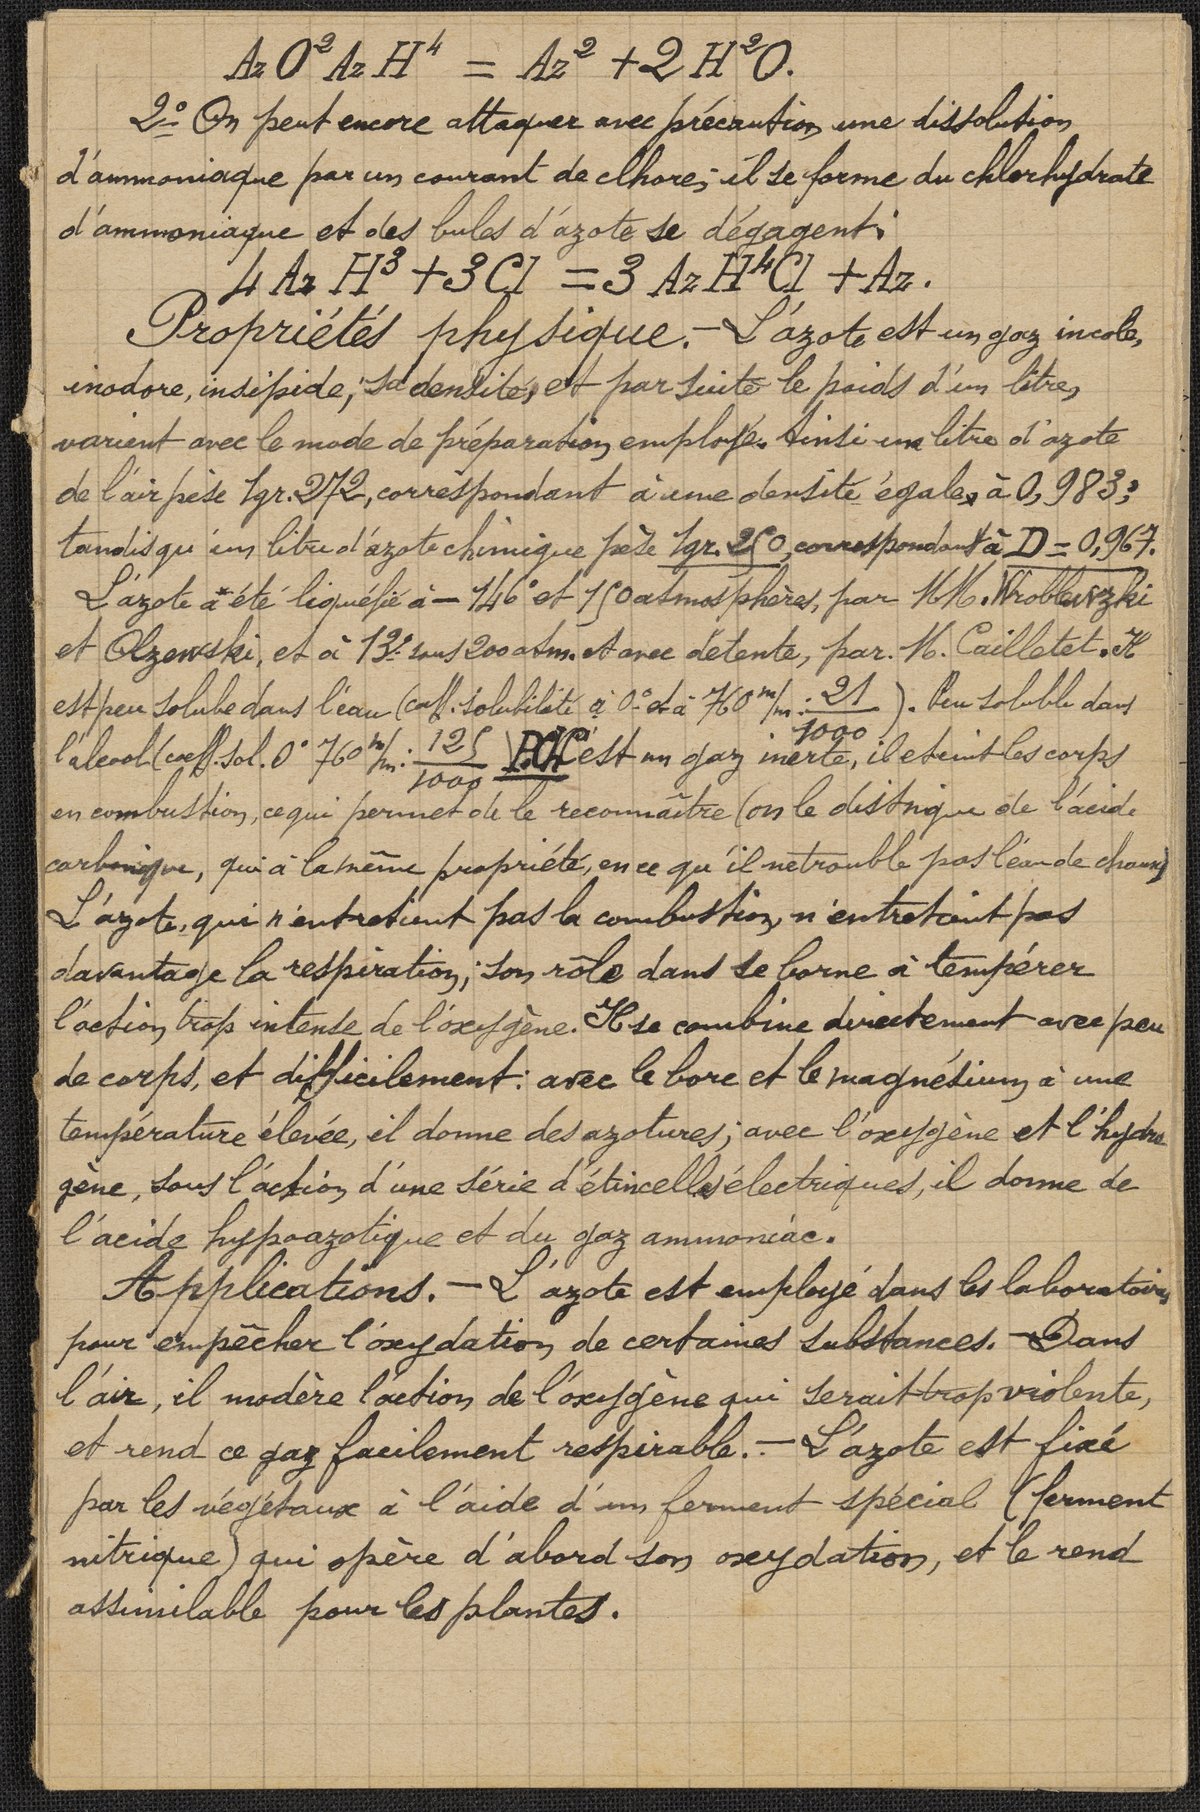 AzO²AzH⁴ = Az² + 2H²O.
2º On peut encore attaquer avec précaution une dissolution
d'ammoniaque par un courant de clhore; il se forme du chlorhydrate
d'ammoniaque et des bules d'azote se dégagent:
4AzH³ + 3Cl = 3AzH⁴Cl + Az.
Propriétés physique. — L'azote est un gaz incole,
inodore, insipide; sa densité, et par suite le poids d'un litre,
varient avec le mode de préparation employé. Ainsi un litre d'azote
de l'air pèse 1gr.272, correspondant à une densité égale à 0,983;
tandis qu'un litre d'azote chimique pèse 1gr.250, correspondant à D = 0,967.
L'azote a été liquéfié à — 146° et 150 atmosphères, par MM. Wroblewzki
et Olzewski, et à 13° sous 200 atm. et avec détente, par M. Cailletet. Il
est peu solube dans l'eau (coff. solubilité à 0° et à 760 m/m : 21/1000). Peu soluble dans
l'alcool (coeff. sol. 0° 760 m/m : 125/1000 C'est un gaz inerte, il eteint les corps
en combustion, ce qui permet de le reconnaître (on le distnigue de l'acide
carbonique, qui à la même propriété, en ce qu'il ne trouble pas l'eau de chaux)
L'azote, qui n'entretient pas la combustion, n'entreteint pas
davantage la respiration; son rôle dans se borne à tempérer
l'action trop intense de l'oxygène. Il se combine directement avec peu
de corps, et difficilement: avec le bore et le magnésium, à une
température élevée, il donne des azotures; avec l'oxygène et l'hydro
gène, sous l'action d'une série d'étincelles électriques, il donne de
l'acide hypoazotique et du gaz ammoniac.
Applications. — L'azote est employé dans les laboratoires
pour empêcher l'oxydation de certaines substances. — Dans
l'air, il modère l'action de l'oxygène qui serait trop violente,
et rend ce gaz facilement respirable. — L'azote est fixé
par les végétaux à l'aide d'un ferment spécial (ferment
nitrique) qui opère d'abord son oxydation, et le rend
assimilable pour les plantes.